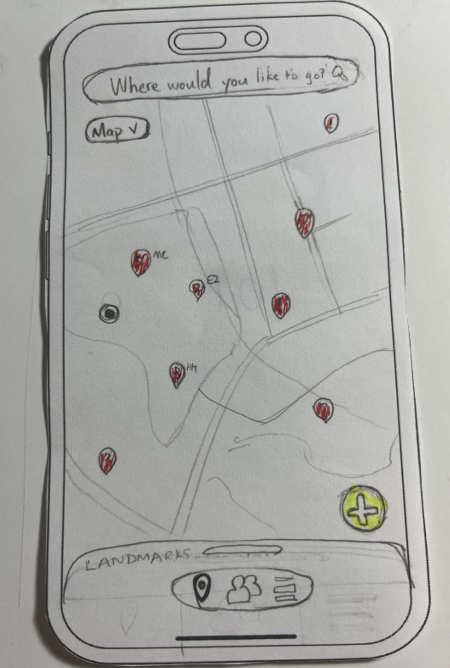 Where would you like to go?
Map V
MC
E2
HH
LANDMARKS